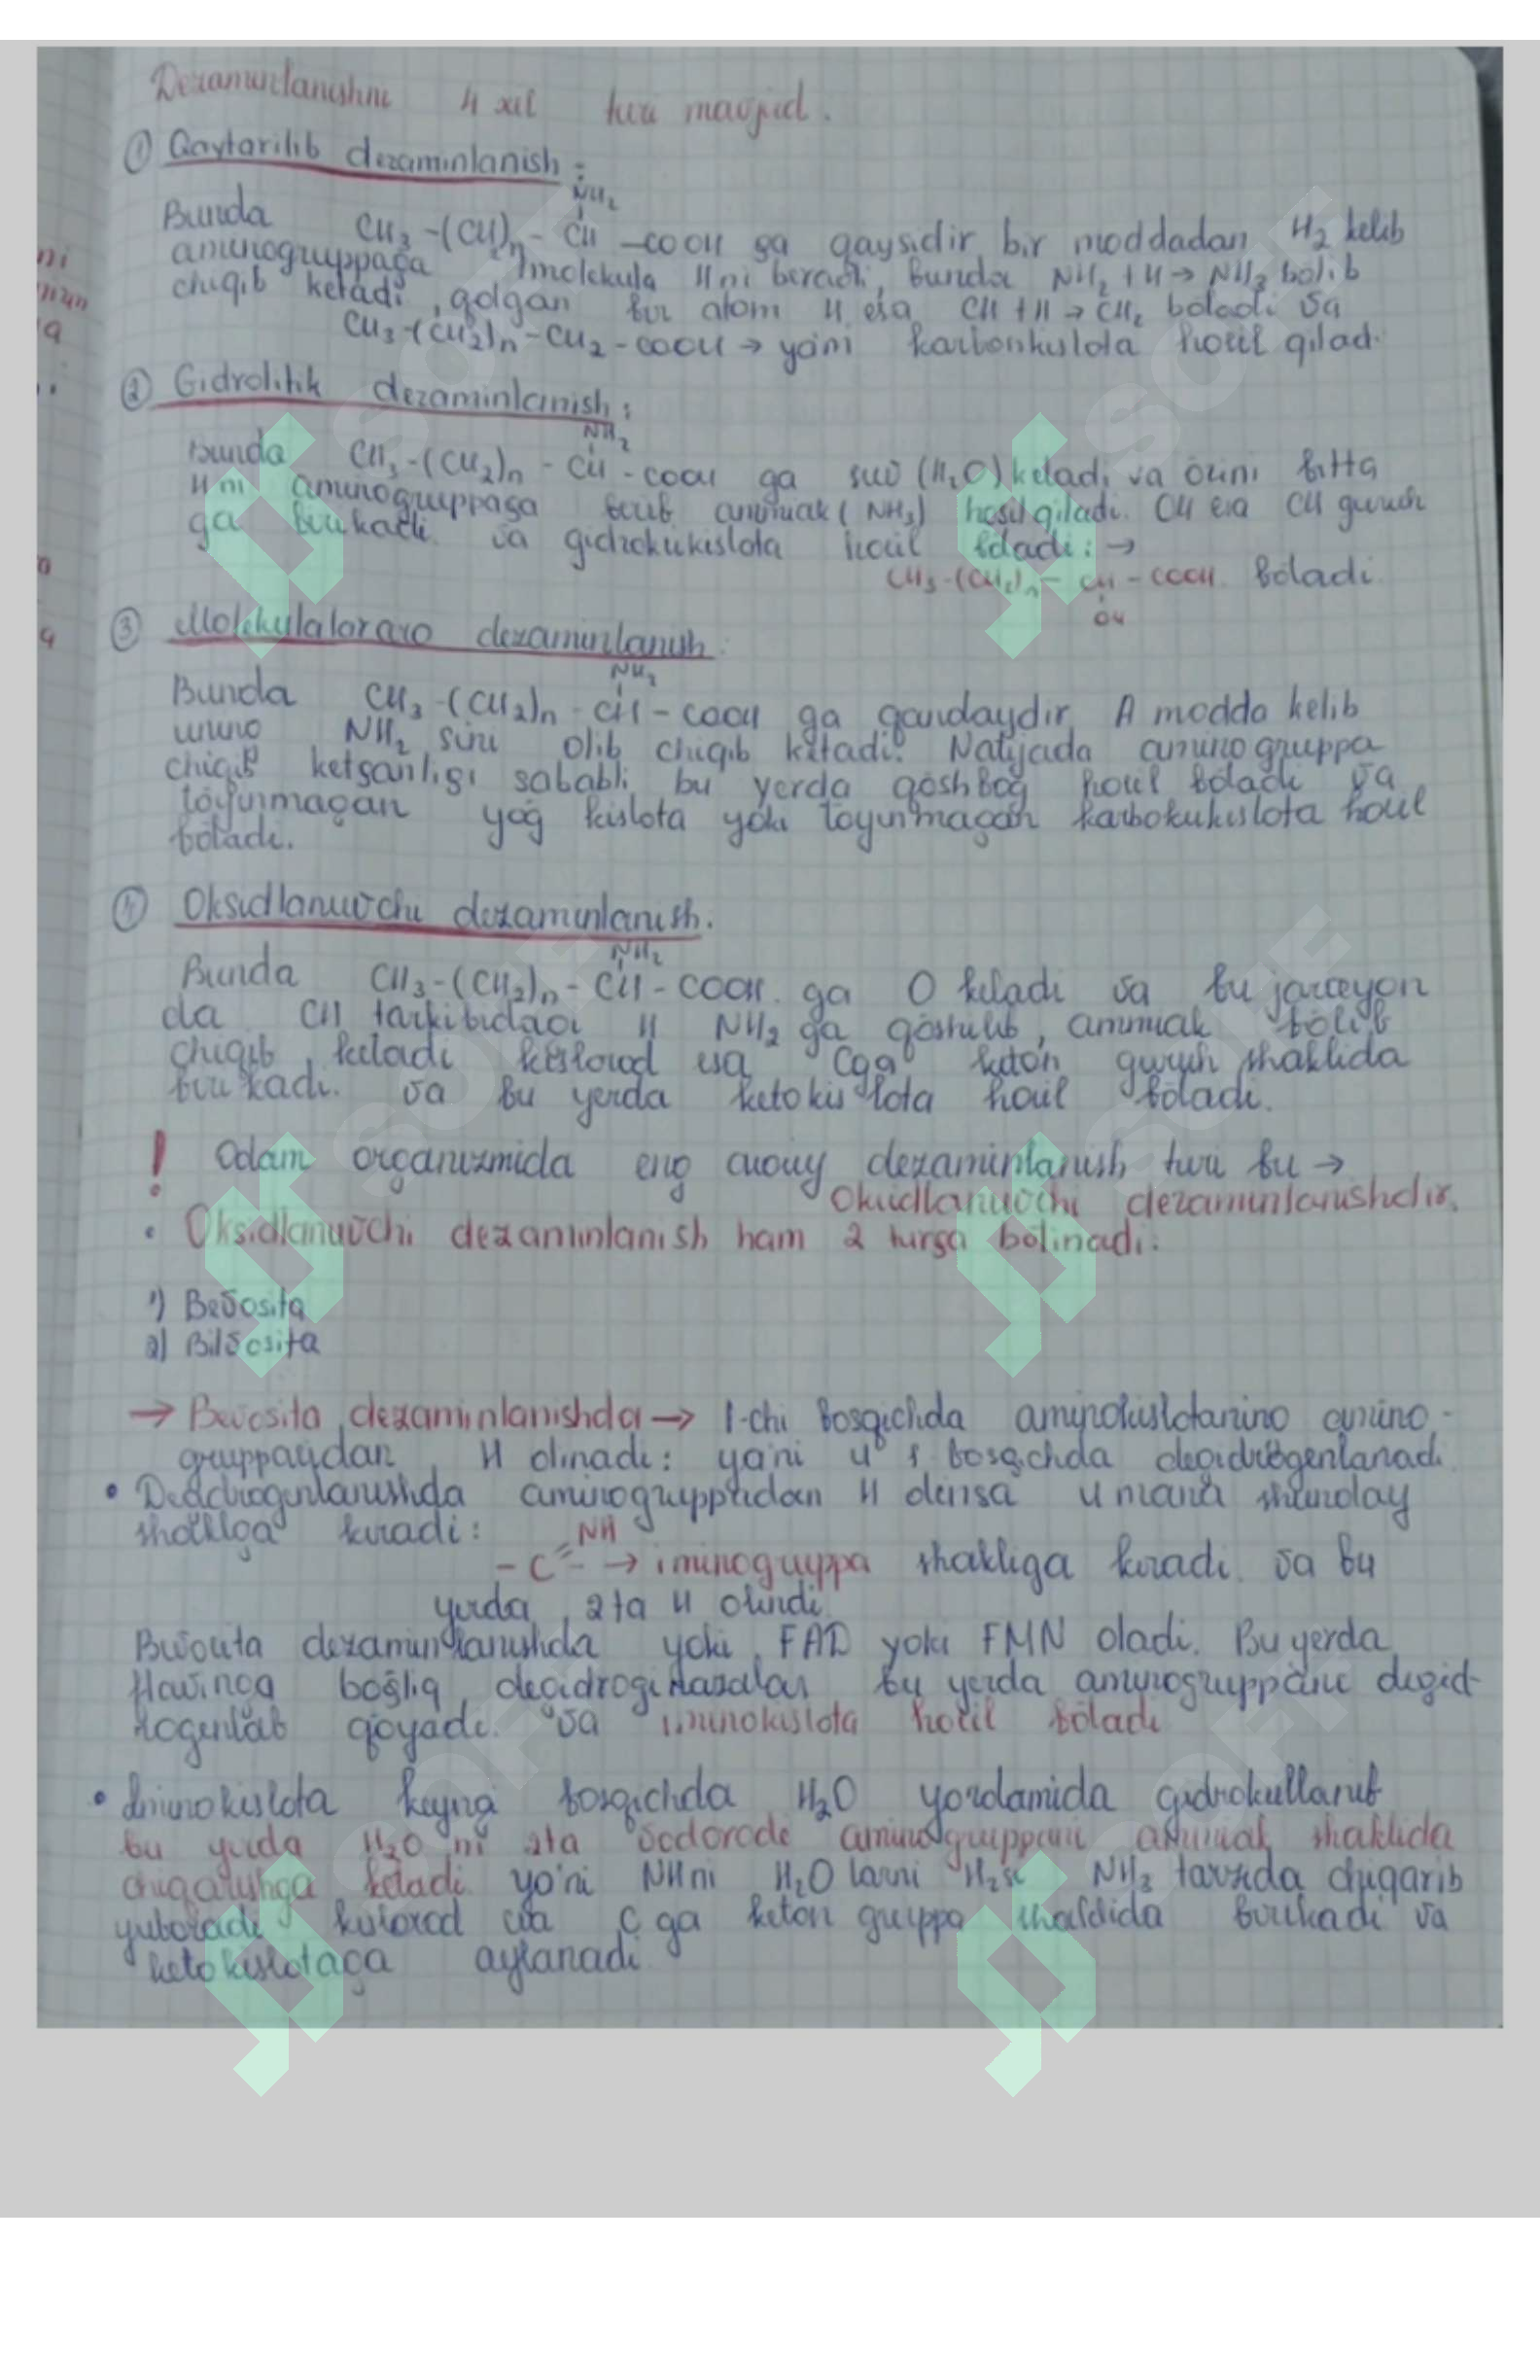 Dezaminlanishni 4 xil turi mavjud.
① Qaytarilib dezaminlanish:
NH₂
Bunda CH₃-(CH)n-CH-COOH ga qaysidir bir moddadan H₂ kelib
aminogruppaga 1molekula H ni beradi, bunda NH₂+H→NH₃ bolib
chiqib ketadi, qolgan bir atom H esa CH+H→CH₂ boladi va
CH₃-(CH₂)n-CH₂-COOH → yani karbonkislota hosil qiladi
② Gidrolitik dezaminlanish:
NH₂
Bunda CH₃-(CH₂)n-CH-COOH ga suv (H₂O) keladi va ozini bitta
H ni aminogruppaga berib ammiak (NH₃) hosil qiladi. OH esa CH guruh
ga birikadi. va gidroksikislota hosil boladi: →
CH₃-(CH₂)n-CH-COOH. boladi.
OH
③ Molekulalararo dezaminlanish
NH₂
Bunda CH₃-(CH₂)n-CH-COOH ga qandaydir A modda kelib
NH₂ sini olib chiqib ketadi. Natijada amino gruppa
chiqib ketganligi sababli bu yerda qoshbog hosil boladi va
toyinmagan yog kislota yoki toyinmagan hosil
boladi.
④ Oksidlanuvchi dezaminlanish.
NH₂
Bunda CH₃-(CH₂)n-CH-COOH ga O keladi va bu jarayon
da CH tarkibidagi H NH₂ ga qoshilib, ammiak bolib
chiqib keladi kislorod esa C ga keton guruh shaklida
birikadi. va bu yerda ketokislota hosil boladi.
! Odam organizmida eng asosiy dezaminlanish turi bu →
Oksidlanuvchi dezaminlanishdir.
• Oksidlanuvchi dezaminlanish ham 2 turga bolinadi:
1) Bevosita
2) Bilvosita
→ Bevosita dezaminlanishda → 1-chi bosqichda aminokislotaning amino-
gruppasidan H olinadi: ya'ni u 1 bosqichda degidrogenlanadi.
• Degidrogenlanishda aminogruppadan H olinsa u mana shunday
shaklga kiradi:
NH
-C= → iminogruppa shakliga kiradi. va bu
yerda 2ta H olindi
Bevosita dezaminlanishda yoki FAD yoki FMN oladi. Bu yerda
flavinga bogliq degidrogenazalar bu yerda aminogruppani degid-
rogenlab qoyadi. va iminokislota hosil boladi
• Iminokislota keyingi bosqichda H₂O yordamida gidrokullanib
bu yerda H₂O ni 2ta vodorodi aminogruppani ammiak shaklida
chiqarishga keladi yo'ni NH ni H₂O larni H₂si NH₃ tarzida chiqarib
yuboradi kislorod esa C ga keton gruppa shaklida birikadi va
ketokislotaga aylanadi
ni
a
SOFF